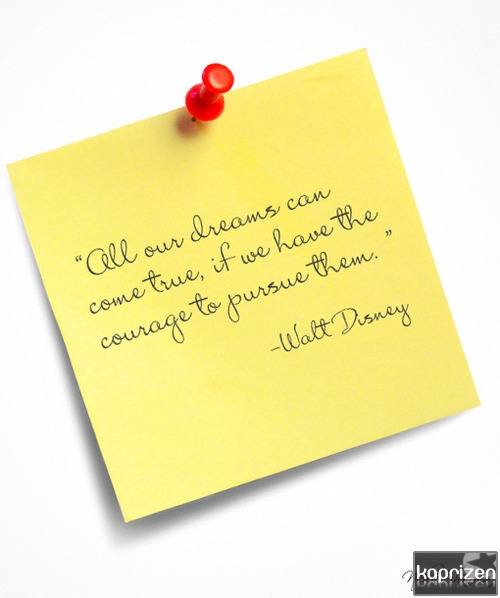 “All our dreams can
come true, if we have the
courage to pursue them.”
-Walt Disney
kaprizen